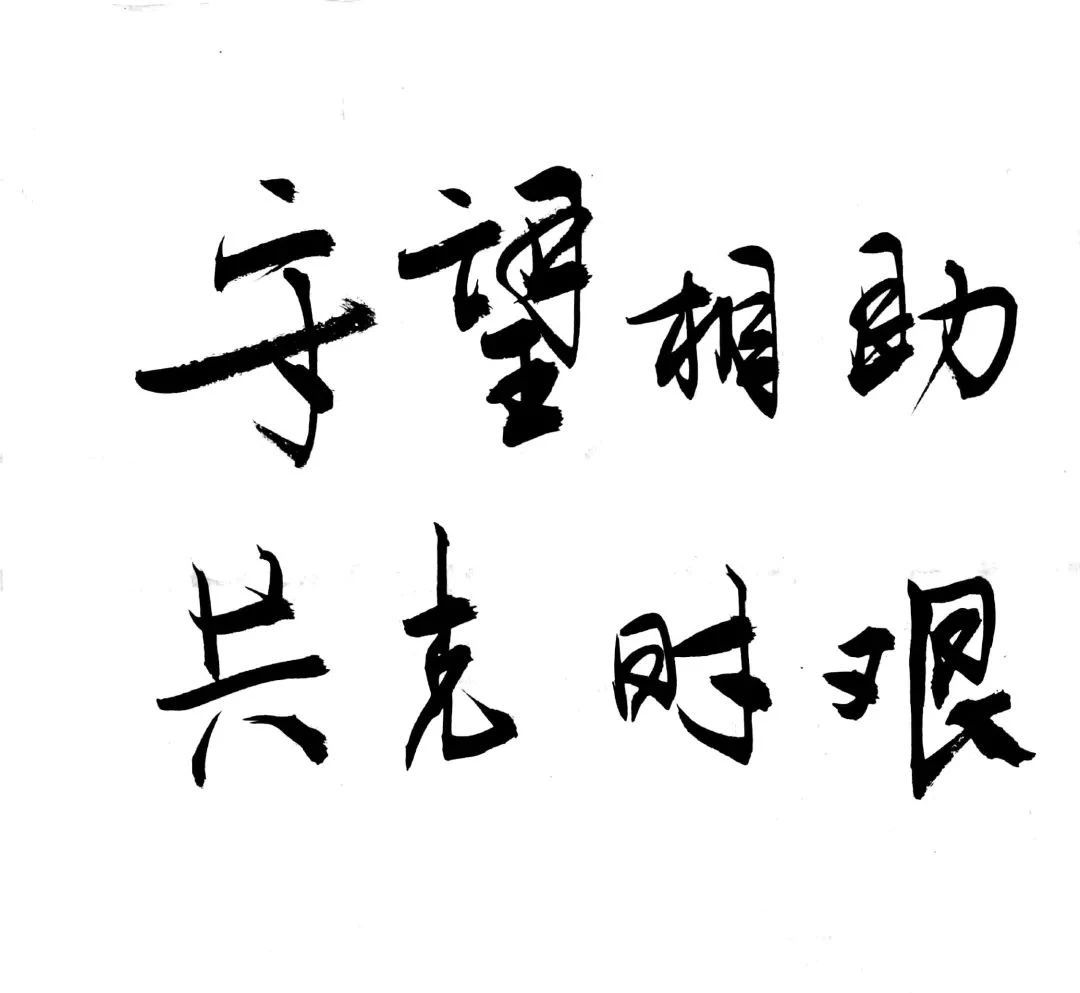 守望相助
共克时艰